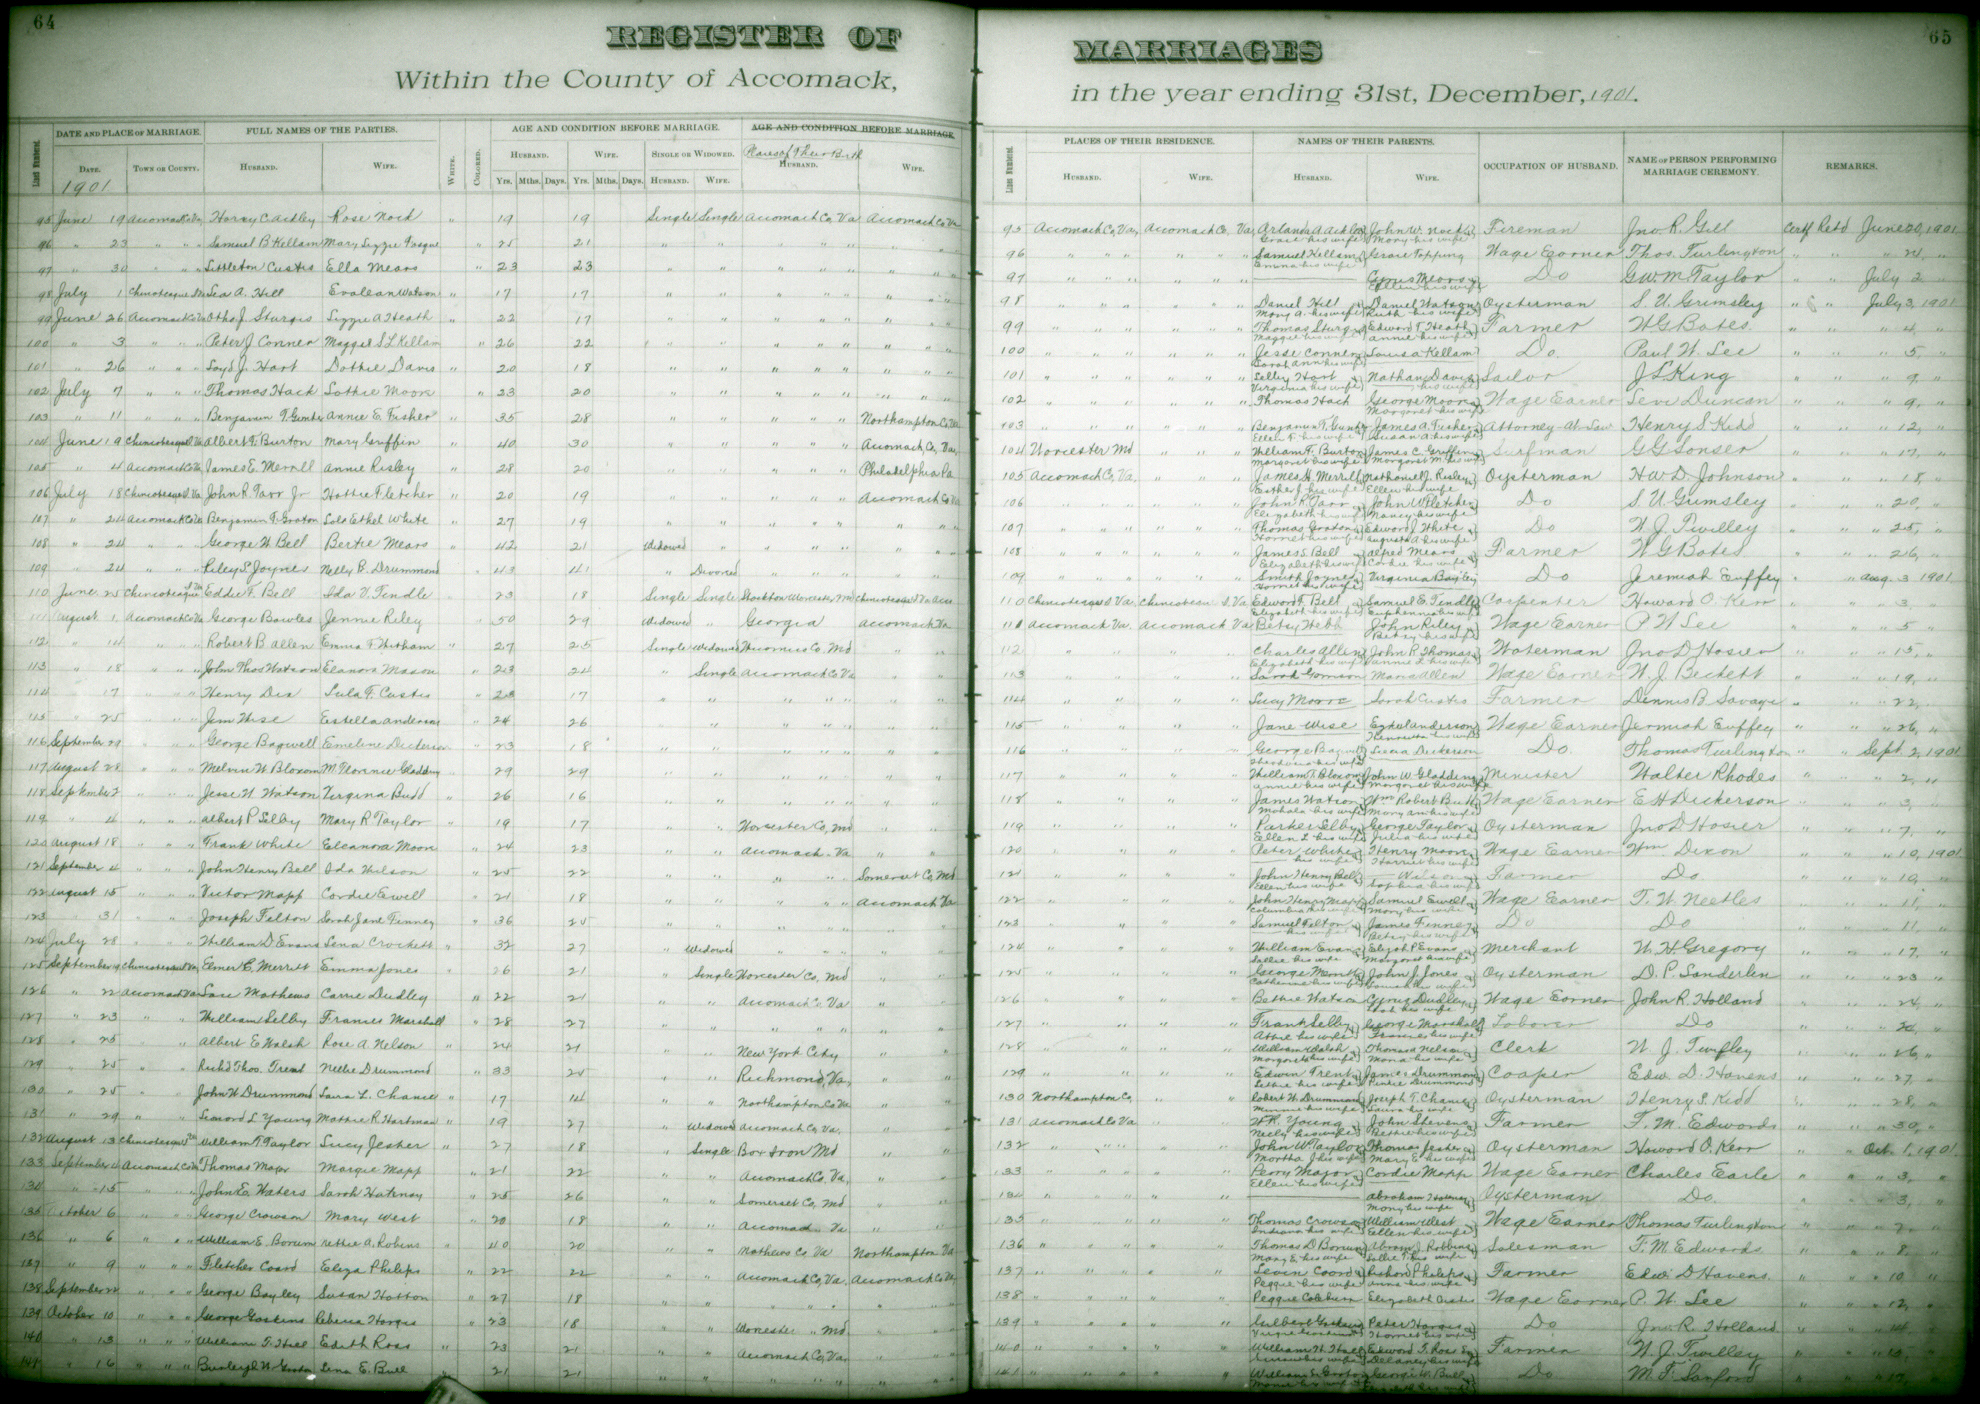 64
REGISTER OF
Within the County of Accomack,
LINES NUMBERED. DATE AND PLACE OF MARRIAGE. FULL NAMES OF THE PARTIES. WHITE. COLORED. AGE AND CONDITION BEFORE MARRIAGE. AGE AND CONDITION BEFORE MARRIAGE.
Places of Their Birth
DATE. TOWN OR COUNTY. HUSBAND. WIFE. HUSBAND. WIFE. SINGLE OR WIDOWED. HUSBAND. WIFE.
1901 Yrs. Mths. Days. Yrs. Mths. Days. HUSBAND. WIFE.
95 June 19 Accomack Co Va Rose Nock " 19 19 Single Single Accomack Co, Va Accomack Co, Va
96 " 23 " " " Samuel B Kellam Mary Lizzie " 25 21 " " " " " " "
97 " 30 " " " Littleton Custis Ella Mears " 23 23 " " " " " " "
98 July 1 Evalean Watson " 17 17 " " " " " " "
99 June 26 Accomack Co Va Otho J. Sturgis Lizzie A Heath " 22 17 " " " " " " "
100 " 3 " " " Peter J Conner Maggie S L Kellam " 26 22 " " " " " " "
101 " 26 " " " Hart Dottie Davis " 20 18 " " " " " " "
102 July 7 " " " Thomas Hack Lottie Moore " 23 20 " " " " " " "
103 " 11 " " " Benjamin T. Gunter Annie E. Fisher " 35 28 " " " " " Northampton Co Va
104 June 19 Albert F. Burton Mary Griffin " 40 30 " " " " " Accomack Co, Va,
105 " 4 Accomack Co Va James E. Merrill Annie Risley " 28 20 " " " " " Philadelphia Pa
106 July 18 John R Tarr Jr Hattie Fletcher " 20 19 " " " " " Accomack Co Va
107 " 24 Accomack Co Va Benjamin T. Groton Lola Ethel White " 27 19 " " " " " " "
108 " 24 " " " George W Bell Bertie Mears " 42 21 Widowed " " " " " "
109 " 24 " " " Riley S. Joynes Nelly B. Drummond " 43 41 " Divorced " " " " "
110 June 25 Eddie F. Bell Ida V. Tindle " 23 18 Single Single
111 August 1 Accomack Co Va George Bowles Jennie Riley " 50 29 Widowed " Georgia Accomack Va
112 " 14 " " " Robert B Allen Emma F. " 27 25 Single Widowed Wicomico Co, Md " "
113 " 18 " " " John Thos Watson Eleanora Mason " 23 24 " Single Accomack Co Va " "
114 " 17 " " " Henry Dix Lula F. Custis " 23 17 " " " " " " "
115 " 25 " " " Jim Wise Estella Anderson " 24 26 " " " " " " "
116 September " " " George Bagwell Emeline Dickerson " 23 18 " " " " " " "
117 August 28 " " " Melvin W Bloxom M Florence Gladding " 29 29 " " " " " " "
118 September 2 " " " Jesse W. Watson Virginia Budd " 26 16 " " " " " " "
119 " 4 " " " Albert P Selby Mary R Taylor " 19 17 " " Worcester Co, Md " "
120 August 18 " " " Frank White Eleanora Moore " 24 23 " " Accomack, Va " "
121 September 4 " " " John Henry Bell Ida Wilson " 25 22 " " " " " Somerset Co, Md
122 August 15 " " " Victor Mapp Cordie Ewell " 21 18 " " " " " Accomack Va
123 " 31 " " " Joseph Felton Sarah Jane Finney " 36 25 " " " " " " "
124 July 28 " " " William D. Evans Lena Crockett " 32 27 " Widowed " " " " "
125 September Elmer E. Merritt Emma Jones " 26 21 " Single Worcester Co, Md " "
126 " 22 Mathews Carrie Dudley " 22 21 " " Accomack Co, Va " "
127 " 23 " " " William Selby Frances Marshall " 28 27 " " " " " " "
128 " 25 " " " Albert E Walsh Rose A. Nelson " 24 21 " " New York City " "
129 " 25 " " " Richd Thos. Trent Nellie Drummond " 33 25 " " Richmond, Va, " "
130 " 25 " " " John W Drummond Laura L. Chance " 17 14 " " Northampton Co Va " "
131 " 29 " " " Leonard L Young Mattie R Hartman " 19 27 " Widowed Accomack Co, Va, " "
132 August 13 William T Taylor Lucy Jester " 27 18 " Single Box Iron Md " "
133 September Accomack Co Va Thomas Major Margie Mapp " 21 22 " " Accomack Co, Va, " "
134 " 15 " " " John E. Waters Sarah " 25 26 " " Somerset Co, Md " "
135 October 6 " " " George Crowson Mary West " 20 18 " " Accomack, Va " "
136 " 6 " " " William E. Borum Nettie A. Robins " 40 20 " " Mathews Co, Va Northampton, Va
137 " 9 " " " Fletcher Coard Eliza Philips " 22 22 " " Accomack Co, Va, Accomack Co Va,
138 September " " " George Bayley Susan Hatton " 27 18 " " " " " " "
139 October 10 " " " George Gaskins Hargis " 23 18 " " Worcester " Md " "
140 " 13 " " " William T. Hall Edith Ross " 23 21 " " Accomack Co, Va, " "
141 " 16 " " " Burleigh W. Lena E. Bull " 21 21 " " " " " " "
65
MARRIAGES
in the year ending 31st, December, 1901.
LINES NUMBERED. PLACES OF THEIR RESIDENCE. NAMES OF THEIR PARENTS. OCCUPATION OF HUSBAND. NAME OF PERSON PERFORMING MARRIAGE CEREMONY. REMARKS.
HUSBAND. WIFE. HUSBAND. WIFE.
95 Accomack Co, Va, Accomack Co, Va, John W. Nock Fireman Jno. R. Gill Certf Retd June 20, 1901
Grace his wife Mary his wife
96 " " " " " " Samuel Kellam Grace Topping Wage Earner Thos. Turlington " " " 24, "
Emma his wife
97 " " " " " " Cyrus Mears Do G. W. M. Taylor " " July 2 "
Ellen his wife
98 " " " " " " Daniel Hill Daniel Watson Oysterman S. U. Grimsley " " July 3, 1901
Mary A. his wife Ruth his wife
99 " " " " " " Thomas Sturgis Edward T. Heath Farmer W G Bates " " " 4, "
Maggie his wife Annie his wife
100 " " " " " " Jesse Conner Louisa Kellam Do. Paul W. Lee " " " 5, "
Sarah Ann his wife
101 " " " " " " Selby Hart Nathan Davis Sailor J L King " " " 9, "
Virginia his wife his wife
102 " " " " " " Thomas Hack George Moore Wage Earner Levi Duncan " " " 9, "
Margaret his wife
103 " " " " " " Benjamin T. Gunter James A. Fisher Attorney-At-Law Henry S Kidd " " " 12, "
Ellen F. his wife Susan A. his wife
104 Worcester Md " " " William F. Burton James C. Griffin Surfman G G Sonser " " " 17, "
Margaret his wife Margaret M. his wife
105 Accomack Co, Va, " " " James H. Merrill Nathaniel J. Risley Oysterman H. W. D. Johnson " " " 18, "
Esther J. his wife Ellen his wife
106 " " " " " " John R. Tarr John W Fletcher Do S. U Grimsley " " " 20, "
Elizabeth his wife Nancy his wife
107 " " " " " " Thomas Groton Edward J White Do W. J. Twilley " " " 25, "
Harriet his wife Augusta A. his wife
108 " " " " " " James S. Bell Alfred Mears Farmer W G Bates " " " 26, "
Elizabeth his wife Cordie his wife
109 " " " " " " Smith Joynes Virginia Bayley Do Jeremiah Cuffey " " Aug. 3 1901
Harriet his wife
110 Edward T. Bell Samuel E. Tindle Carpenter Howard O. Kerr " " " 3, "
Elizabeth his wife his wife
111 Accomack Va. Accomack Va Betsy Webb John Riley Wage Earner P. W Lee " " " 5 "
Betsy his wife
112 " " " " Charles Allen John P. Thomas Waterman Jno D Hosier " " " 15, "
Elizabeth his wife Annie L. his wife
113 " " " " Sarah Garrison Maria Allen Wage Earner W. J. Beckett " " " 19, "
114 " " " " Lucy Moore Sarah Custis Farmer Dennis B Savage " " " 22, "
115 " " " " Jane Wise Anderson Wage Earner Jeremiah Cuffey " " " 26, "
Henrietta his wife
116 " " " " George Bagwell Dickerson Do. Thomas Turlington " " Sept 2, 1901
117 " " " " William T. Bloxom John W Gladding Minister Walter Rhodes " " " 2, "
Annie his wife Margaret his wife
118 " " " " James Watson Wm Robert Budd Wage Earner E H Dickerson " " " 3, "
Mahala his wife Mary Ann his wife
119 " " " " Parker Selby George Taylor Oysterman Jno D Hosier " " " 7, "
Ellen L. his wife Julia his wife
120 " " " " Peter White Henry Moore Wage Earner Wm. Dixon " " " 10, 1901
his wife Harriet his wife
121 " " " " John Henry Bell Wilson Farmer Do. " " " 10, "
Ellen his wife Sophia his wife
122 " " " " John Henry Mapp Samuel Ewell Wage Earner T. W Nettles " " " 11, "
Columbia his wife Mary his wife
123 " " " " Samuel Felton James Finney Do Do " " " 11, "
his wife Betsy his wife
124 " " " " William Evans Elijah P. Evans Merchant W. H. Gregory " " " 17, "
Sallie his wife Margaret his wife
125 " " " " George Merritt John J. Jones Oysterman D. P. Sanderlin " " " 23 "
Catherine his wife his wife
126 " " " " Bettie Watson Cyrus Dudley Wage Earner John R. Holland " " " 24, "
Leah his wife
127 " " " " Frank Selby George Marshall Laborer Do " " " 24, "
his wife Frances his wife
128 " " " " William Walsh Thomas Nelson Clerk W. J. Twilley " " " 26, "
Margaret his wife Maria his wife
129 " " " " Edwin Trent James Drummond Cooper Edw. D. Havens " " " 27, "
Lettie his wife Drummond
130 Northampton Co, " " Robert W. Drummond Joseph T. Chance Oysterman Henry S. Kidd " " " 28, "
Minnie his wife Laura his wife
131 Accomack Co Va " " W. R. Young John Stevens Farmer F. M. Edwards " " " 30, "
Neely his wife Bettie his wife
132 " " " " John W Taylor Thomas Jester Oysterman Howard O. Kerr " " Oct. 1, 1901
Martha J his wife Mary E his wife
133 " " " " Perry Major Cordie Mapp Wage Earner Charles Earle " " " 3, "
Ellen his wife
134 " " " " Abraham Oysterman Do. " " " 3, "
Mary his wife
135 " " " " Thomas Crowson William West Wage Earner Thomas Turlington " " " 7, "
his wife Ellen his wife
136 " " " " Thomas D Borum Abram J. Robbins Salesman F. M. Edwards " " " 8, "
Mary E his wife Sallie T. his wife
137 " " " " Levin Coard Richard Philips Farmer Edw. D Havens " " " 10, "
Peggie his wife Anna his wife
138 " " " " Peggie Coleburn Elizabeth Custis Wage Earner P. W. Lee " " " 12, "
139 " " " " Gaskins Peter Hargis Do Jno. R. Holland " " " 14, "
Harriet his wife
140 " " " " William H. Hall Edward T. Ross Farmer W. J. Twilley " " " 15, "
his wife Delaney his wife
141 " " " " William S. Groton George W. Bull Do M. F. Sanford " " " 17, "
his wife his wife